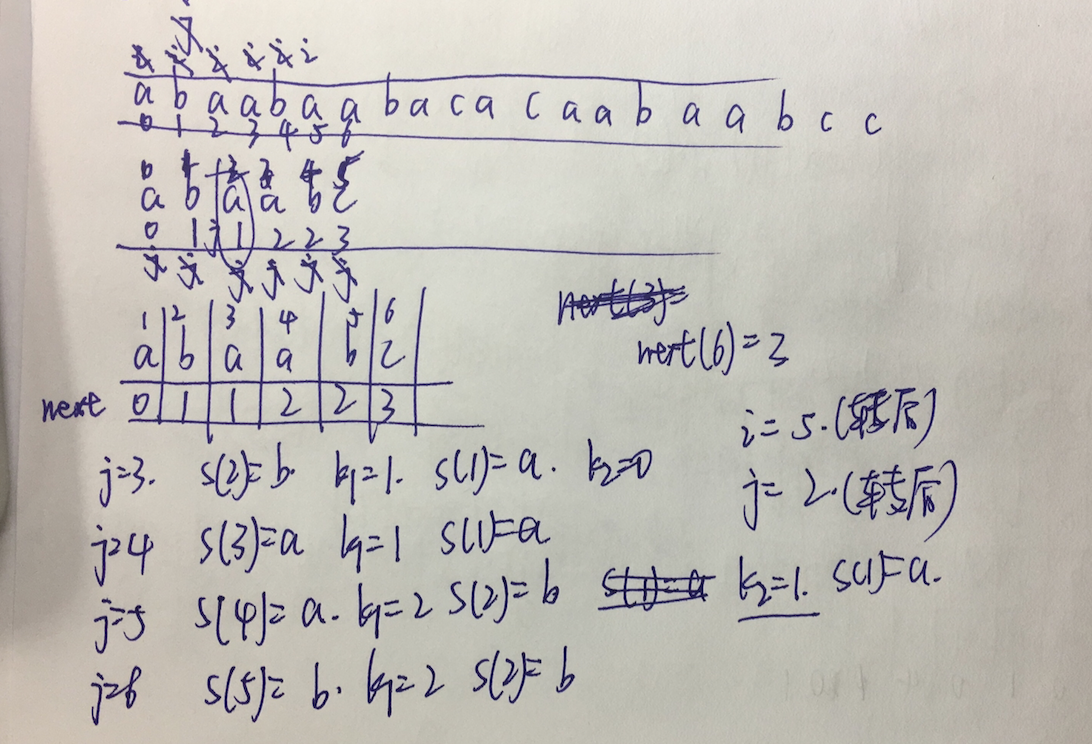 a b a a b a a b a c a c a a b a a b c c
0 1 2 3 4 5 6
a b a a b c
0 1 1 2 2 3
1 2 3 4 5 6
a b a a b c
next 0 1 1 2 2 3
next(6)=3
i=5.(转后)
j=2.(转后)
j=3. s(2)=b. k1=1. s(1)=a. k2=0
j=4 s(3)=a k1=1 s(1)=a
j=5 s(4)=a. k1=2 s(2)=b k2=1. s(1)=a.
j=6 s(5)=b. k1=2 s(2)=b